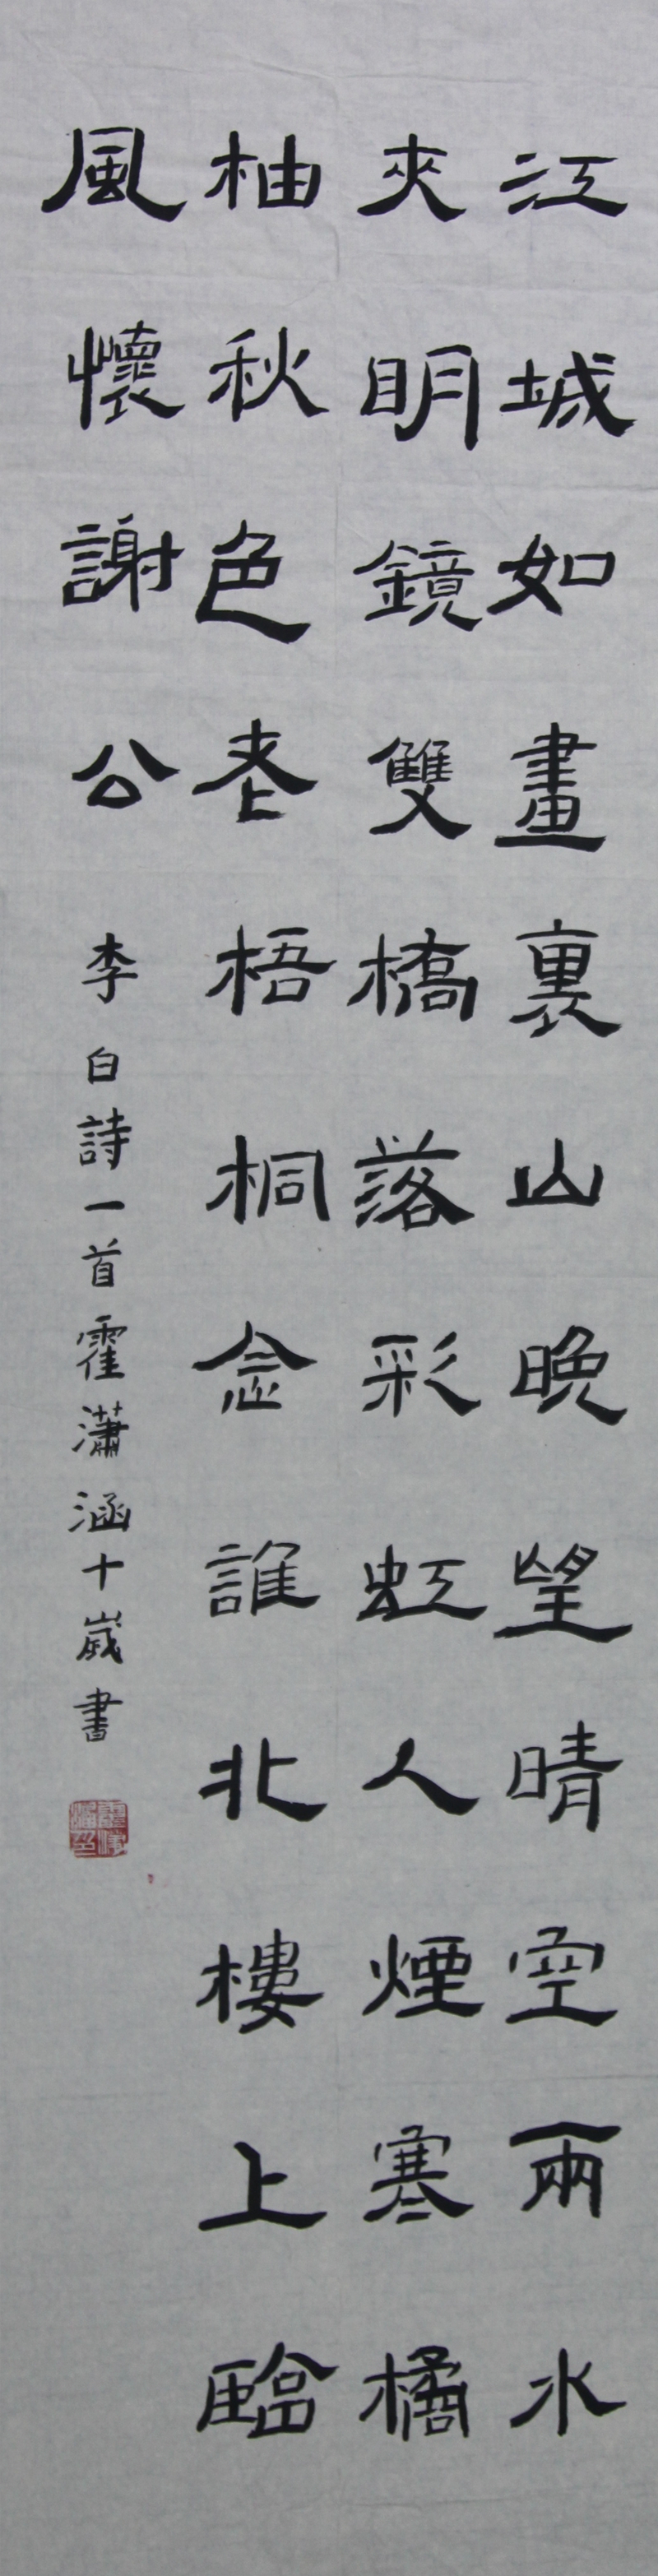 江城如畫裏山晚望晴空兩水
夾明鏡雙橋落彩虹人煙寒橘
柚秋色老梧桐念誰北樓上臨
風懷謝公
李白詩一首霍瀟涵十歲書